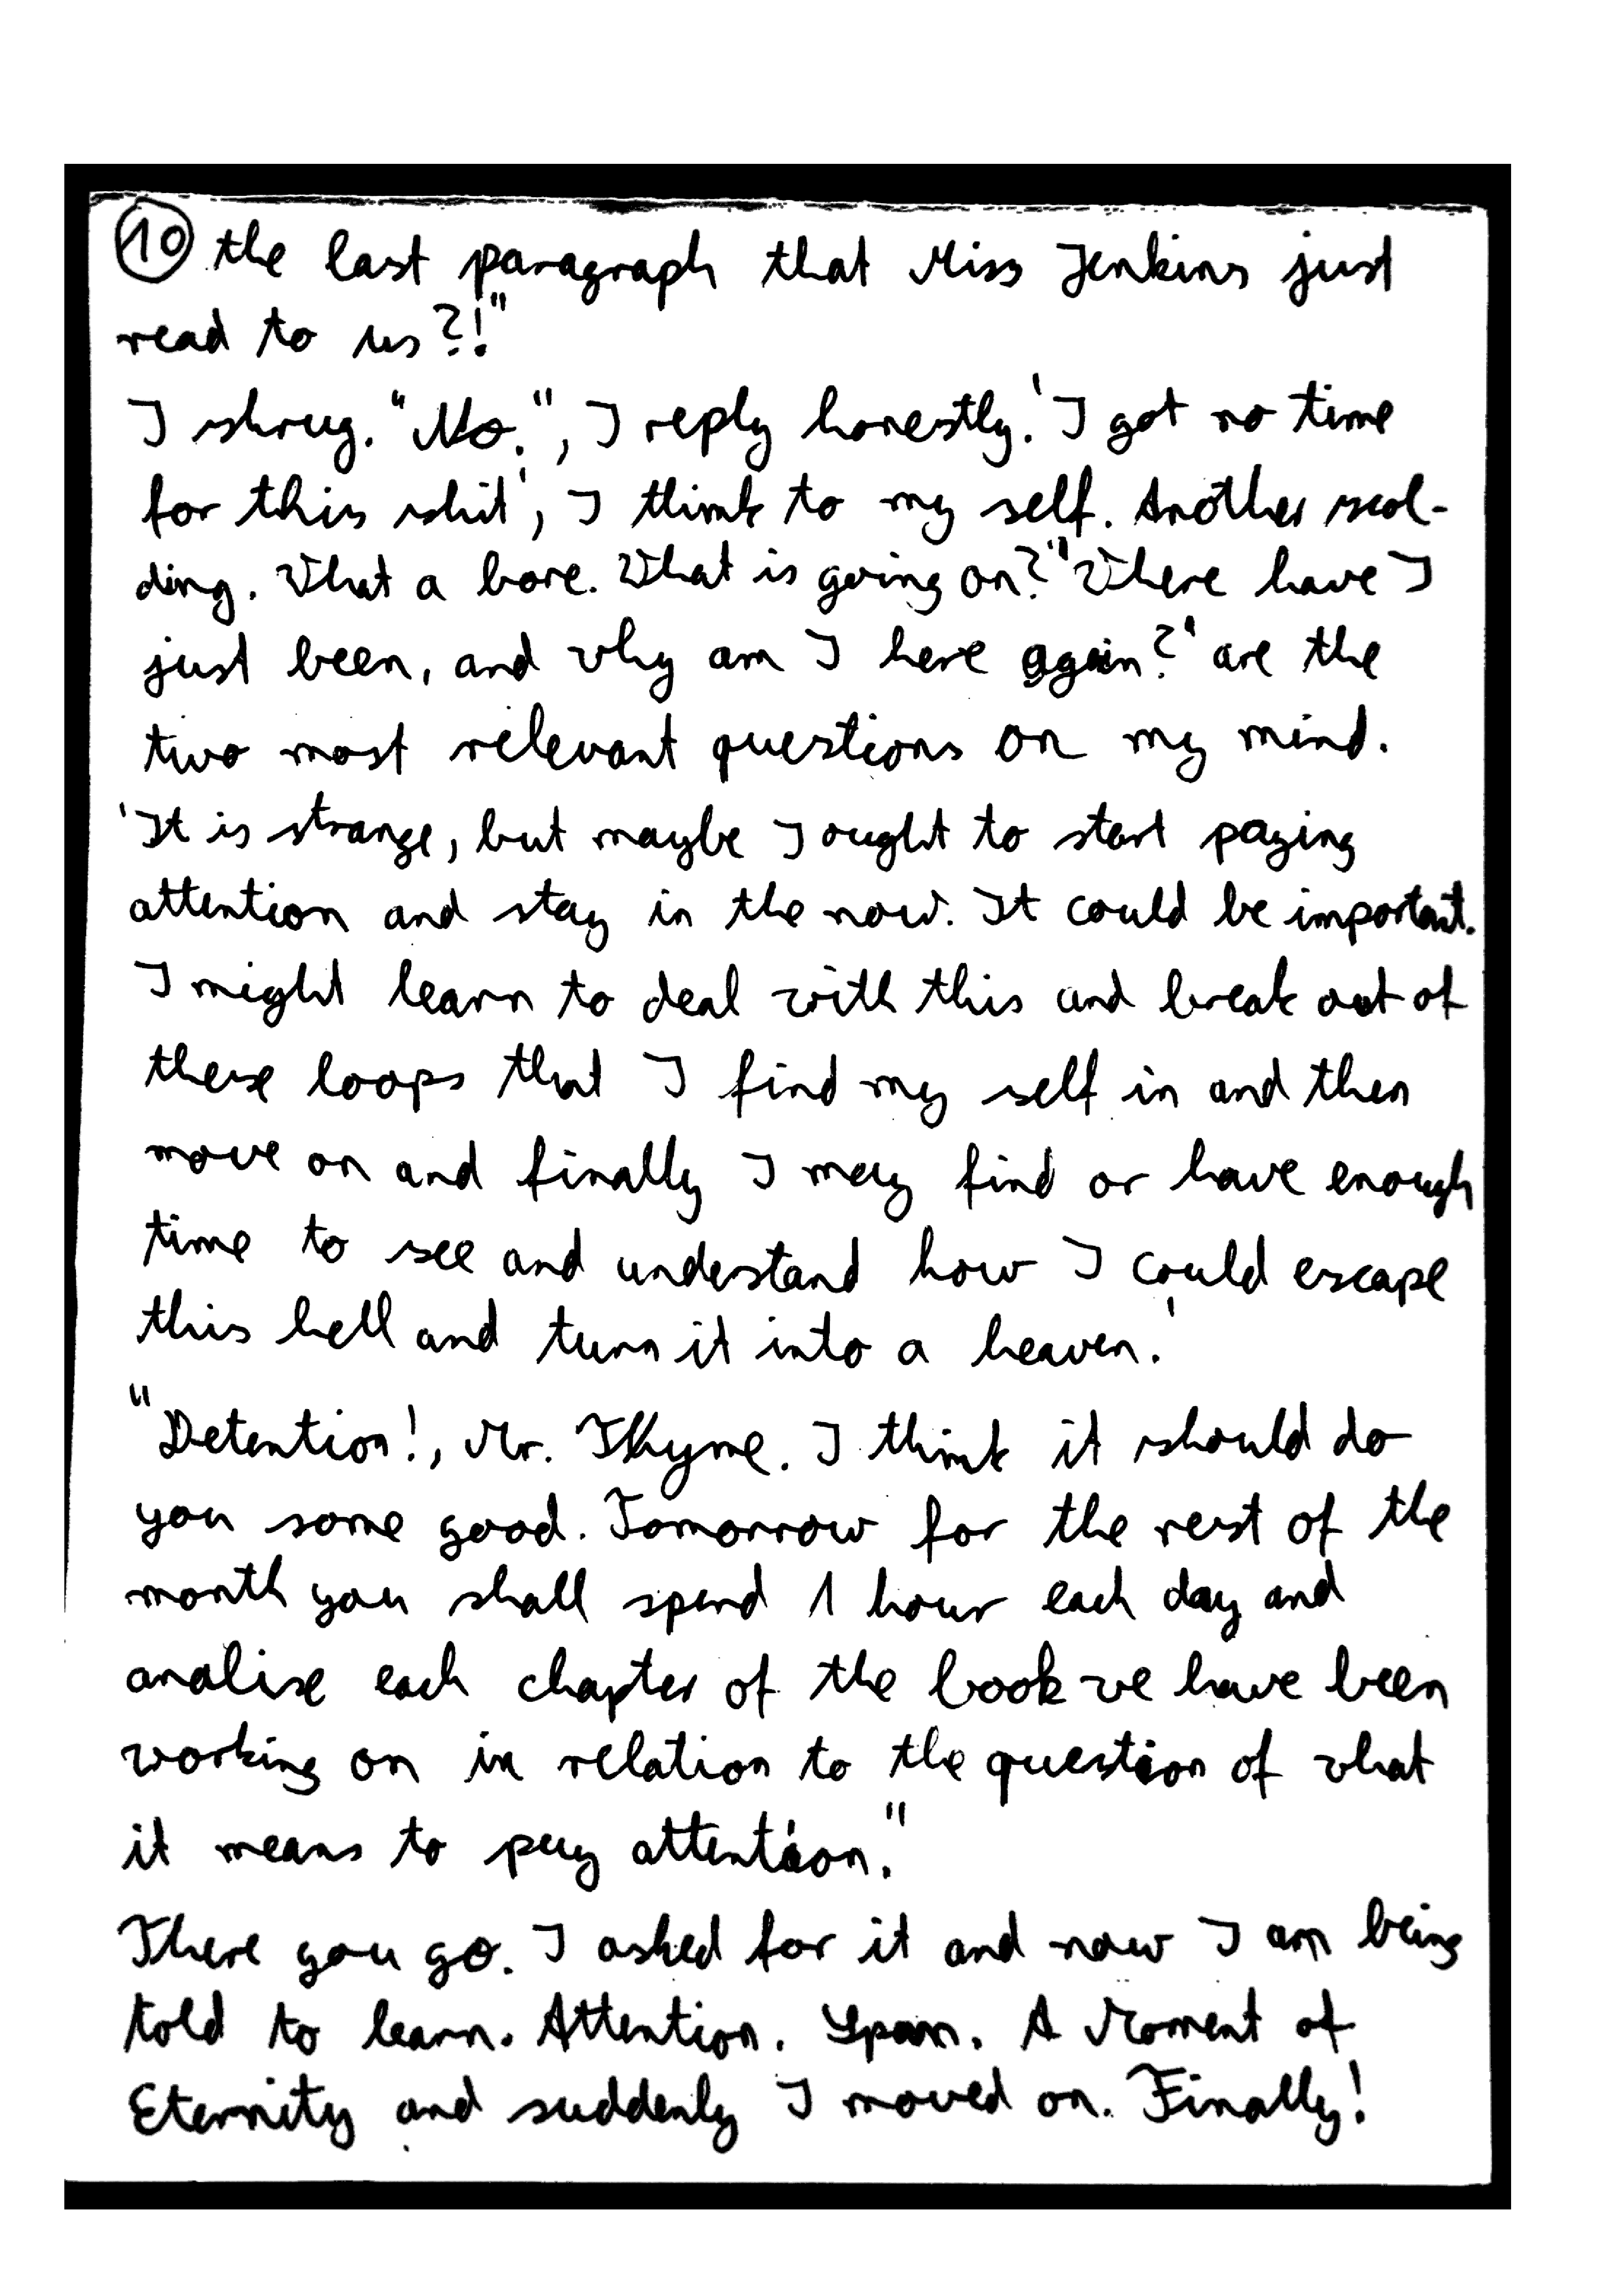 10 the last paragraph that Miss Jenkins just
read to us?!"
I shrug. "No.", I reply honestly. 'I got no time
for this shit', I think to my self. Another scol-
ding. What a bore. What is going on? 'Where have I
just been, and why am I here again?' are the
two most relevant questions on my mind.
'It is strange, but maybe I ought to start paying
attention and stay in the now. It could be important.
I might learn to deal with this and break out of
these loops that I find my self in and then
move on and finally I may find or have enough
time to see and understand how I could escape
this hell and turn it into a heaven.'
"Detention!, Mr. Thyme. I think it should do
you some good. Tomorrow for the rest of the
month you shall spend 1 hour each day and
analise each chapter of the book we have been
working on in relation to the question of what
it means to pay attention."
There you go. I asked for it and now I am being
told to learn. Attention. Span. A Moment of
Eternity and suddenly I moved on. Finally!